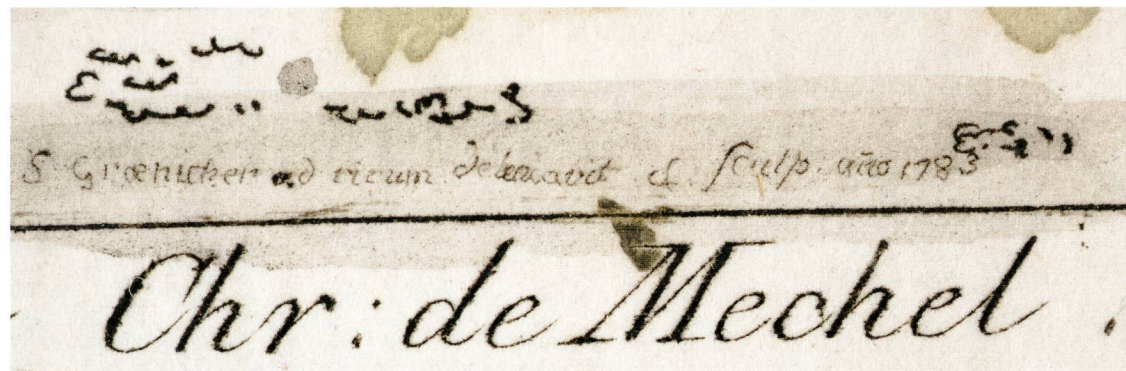 S Grænicher ad vivum delineavit et sculp. año 1783
Chr: de Mechel.